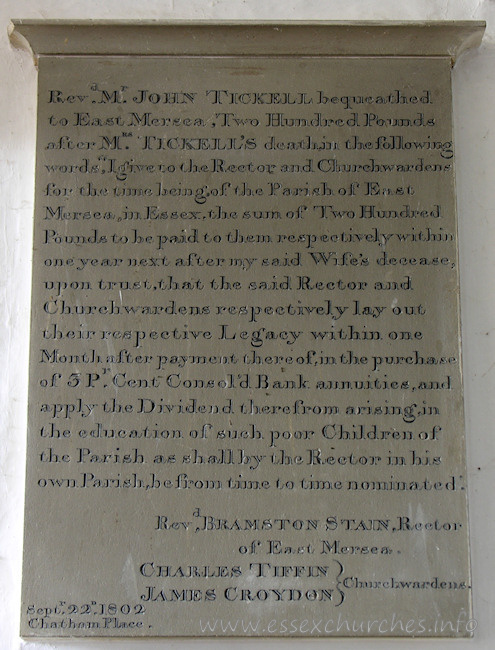 Revd. Mr. JOHN TICKELL bequeathed
to East Mersea, Two Hundred Pounds
after Mrs TICKELL'S death, in the following
words, "I give to the Rector and Churchwardens
for the time being, of the Parish of East
Mersea, in Essex, the sum of Two Hundred
Pounds to be paid to them respectively within
one year next after my said Wife's decease,
upon trust, that the said Rector and
Churchwardens respectively lay out
their respective Legacy within one
Month after payment thereof, in the purchase
of 3 Pr. Cent. Consol'd Bank annuities, and
apply the Dividend therefrom arising, in
the education of such poor Children of
the Parish as shall by the Rector in his
own Parish, be from time to time nominated".
Revd. BRAMSTON STAIN, Rector
of East Mersea.
CHARLES TIFFIN
JAMES CROYDON } Churchwardens.
Septr. 22n. 1802
Chatham Place.
www.essexchurches.info